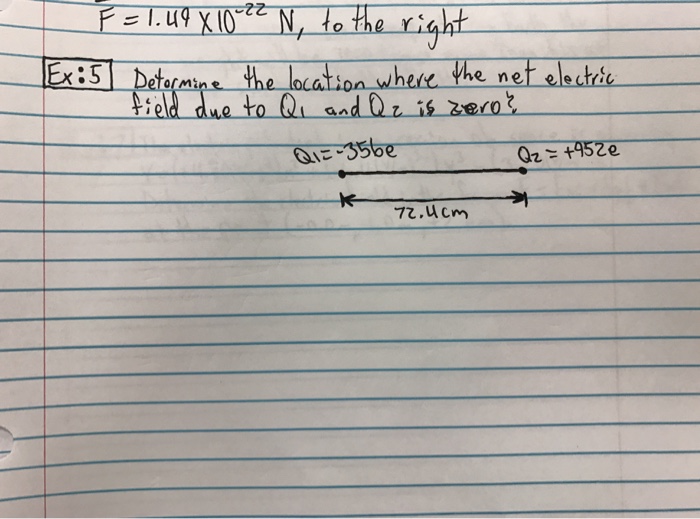 F = 1.49 X 10⁻²² N, to the right
Ex:5 Determine the location where the net electric
field due to Q₁ and Q₂ is zero?
Q₁=-356e Q₂ = +952e
72.4cm